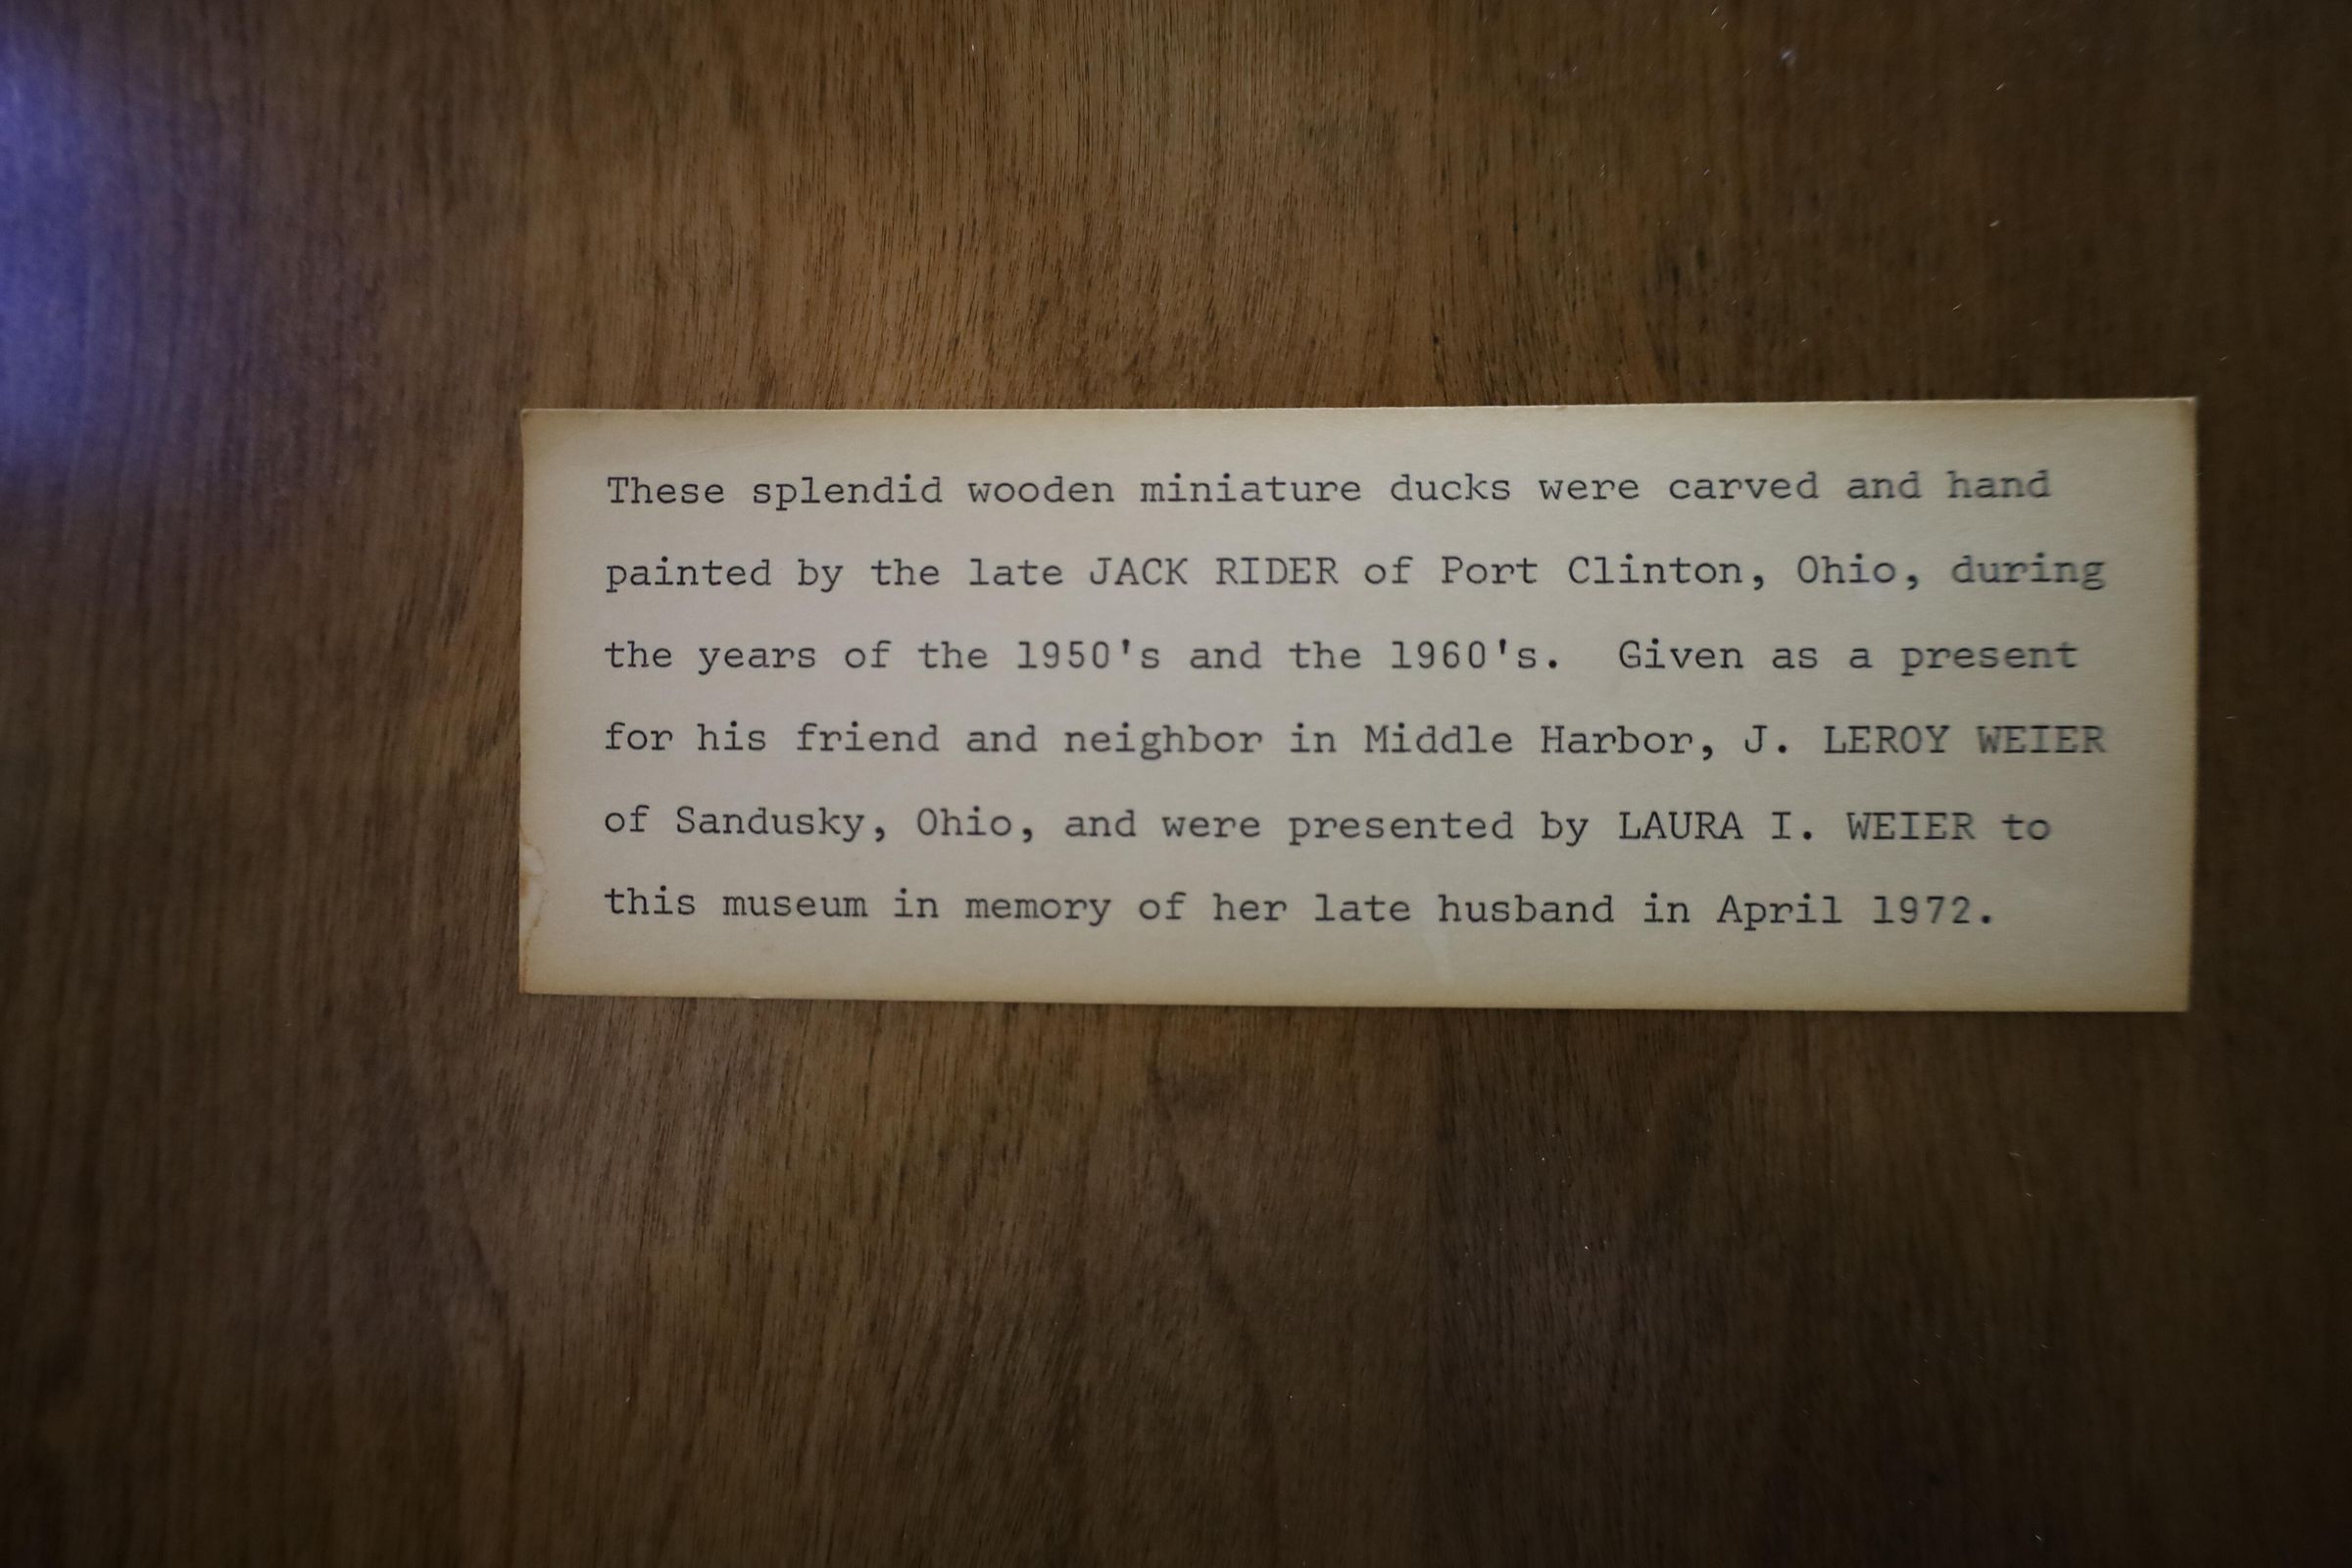 These splendid wooden miniature ducks were carved and hand
painted by the late JACK RIDER of Port Clinton, Ohio, during
the years of the 1950's and the 1960's.  Given as a present
for his friend and neighbor in Middle Harbor, J. LEROY WEIER
of Sandusky, Ohio, and were presented by LAURA I. WEIER to
this museum in memory of her late husband in April 1972.